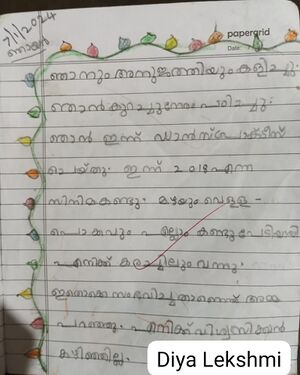 papergrid
Date:
7/1/2024
ഞായർ
ഞാനും അനുജത്തിയും കളിച്ചു.
ഞാൻ കുറച്ചുനേരം പഠിച്ചു.
ഞാൻ ഇന്ന് ഡാൻസ് പ്രാക്ടീസ്
ചെയ്തു. ഇന്ന് 2018 എന്ന
സിനിമ കണ്ടു. മഴയും വെള്ള-
പൊക്കവും എല്ലാം കണ്ടു പേടിയായി
എനിക്ക് കരച്ചിലും വന്നു.
ഇതൊക്കെ സംഭവിച്ചതാണെന്ന് അമ്മ
പറഞ്ഞു. എനിക്ക് വിശ്വസിക്കാൻ
കഴിഞ്ഞില്ല.
Diya Lekshmi